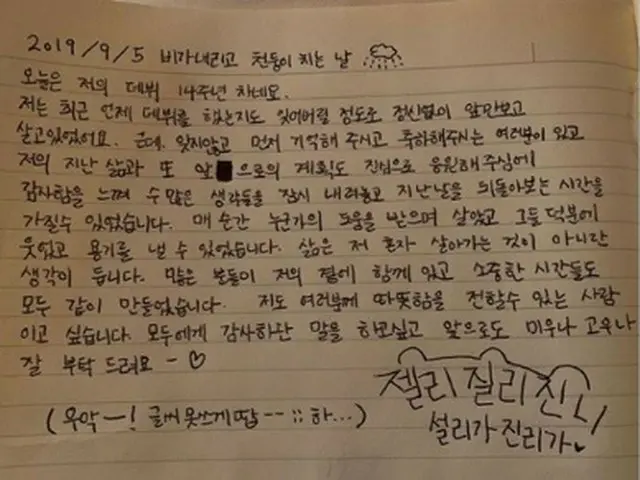 2019/9/5 비가내리고 천둥이 치는 날
오늘은 저의 데뷔 14주년 차네요.
저는 최근 언제 데뷔를 했는지도 잊어버릴 정도로 정신없이 앞만보고
살고있었어요. 근데, 잊지않고 먼저 기억해 주시고 축하해주시는 여러분이 있고
저의 지난 삶과 또 앞으로의 계획도 진심으로 응원해주심에
감사함을 느끼며 수많은 생각들을 잠시 내려놓고 지난날을 뒤돌아보는 시간을
가질수 있었습니다. 매 순간 누군가의 도움을 받으며 살았고 그들 덕분에
웃었고 용기를 낼 수 있었습니다. 삶은 저 혼자 살아가는 것이 아니란
생각이 듭니다. 많은 분들이 저의 곁에 함께 있고 소중한 시간들도
모두 같이 만들었습니다. 저도 여러분께 따뜻함을 전할수 있는 사람
이고 싶습니다. 모두에게 감사하단 말을 하고싶고 앞으로도 미우나 고우나
잘 부탁 드려요 - ♡
젤리 질리 진
(우악-! 글씨 못쓰게땁 --;; 하...)
설리가 진리가♥